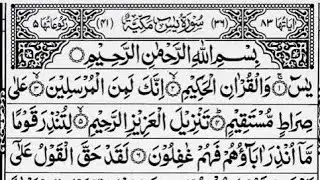 اٰيَاتُهَا ٨٣ (٣٦) سُوْرَةُ يٰسٓ مَكِّيَّةٌ (٤١) رُكُوْعَاتُهَا ٥
بِسْمِ اللّٰهِ الرَّحْمٰنِ الرَّحِيْمِ
يٰسٓ ۝ وَالْقُرْاٰنِ الْحَكِيْمِ ۝ اِنَّكَ لَمِنَ الْمُرْسَلِيْنَ ۝ عَلٰى
صِرَاطٍ مُّسْتَقِيْمٍ ۝ تَنْزِيْلَ الْعَزِيْزِ الرَّحِيْمِ ۝ لِتُنْذِرَ قَوْمًا
مَّاۤ اُنْذِرَ اٰبَآؤُهُمْ فَهُمْ غٰفِلُوْنَ ۝ لَقَدْ حَقَّ الْقَوْلُ عَلٰۤى